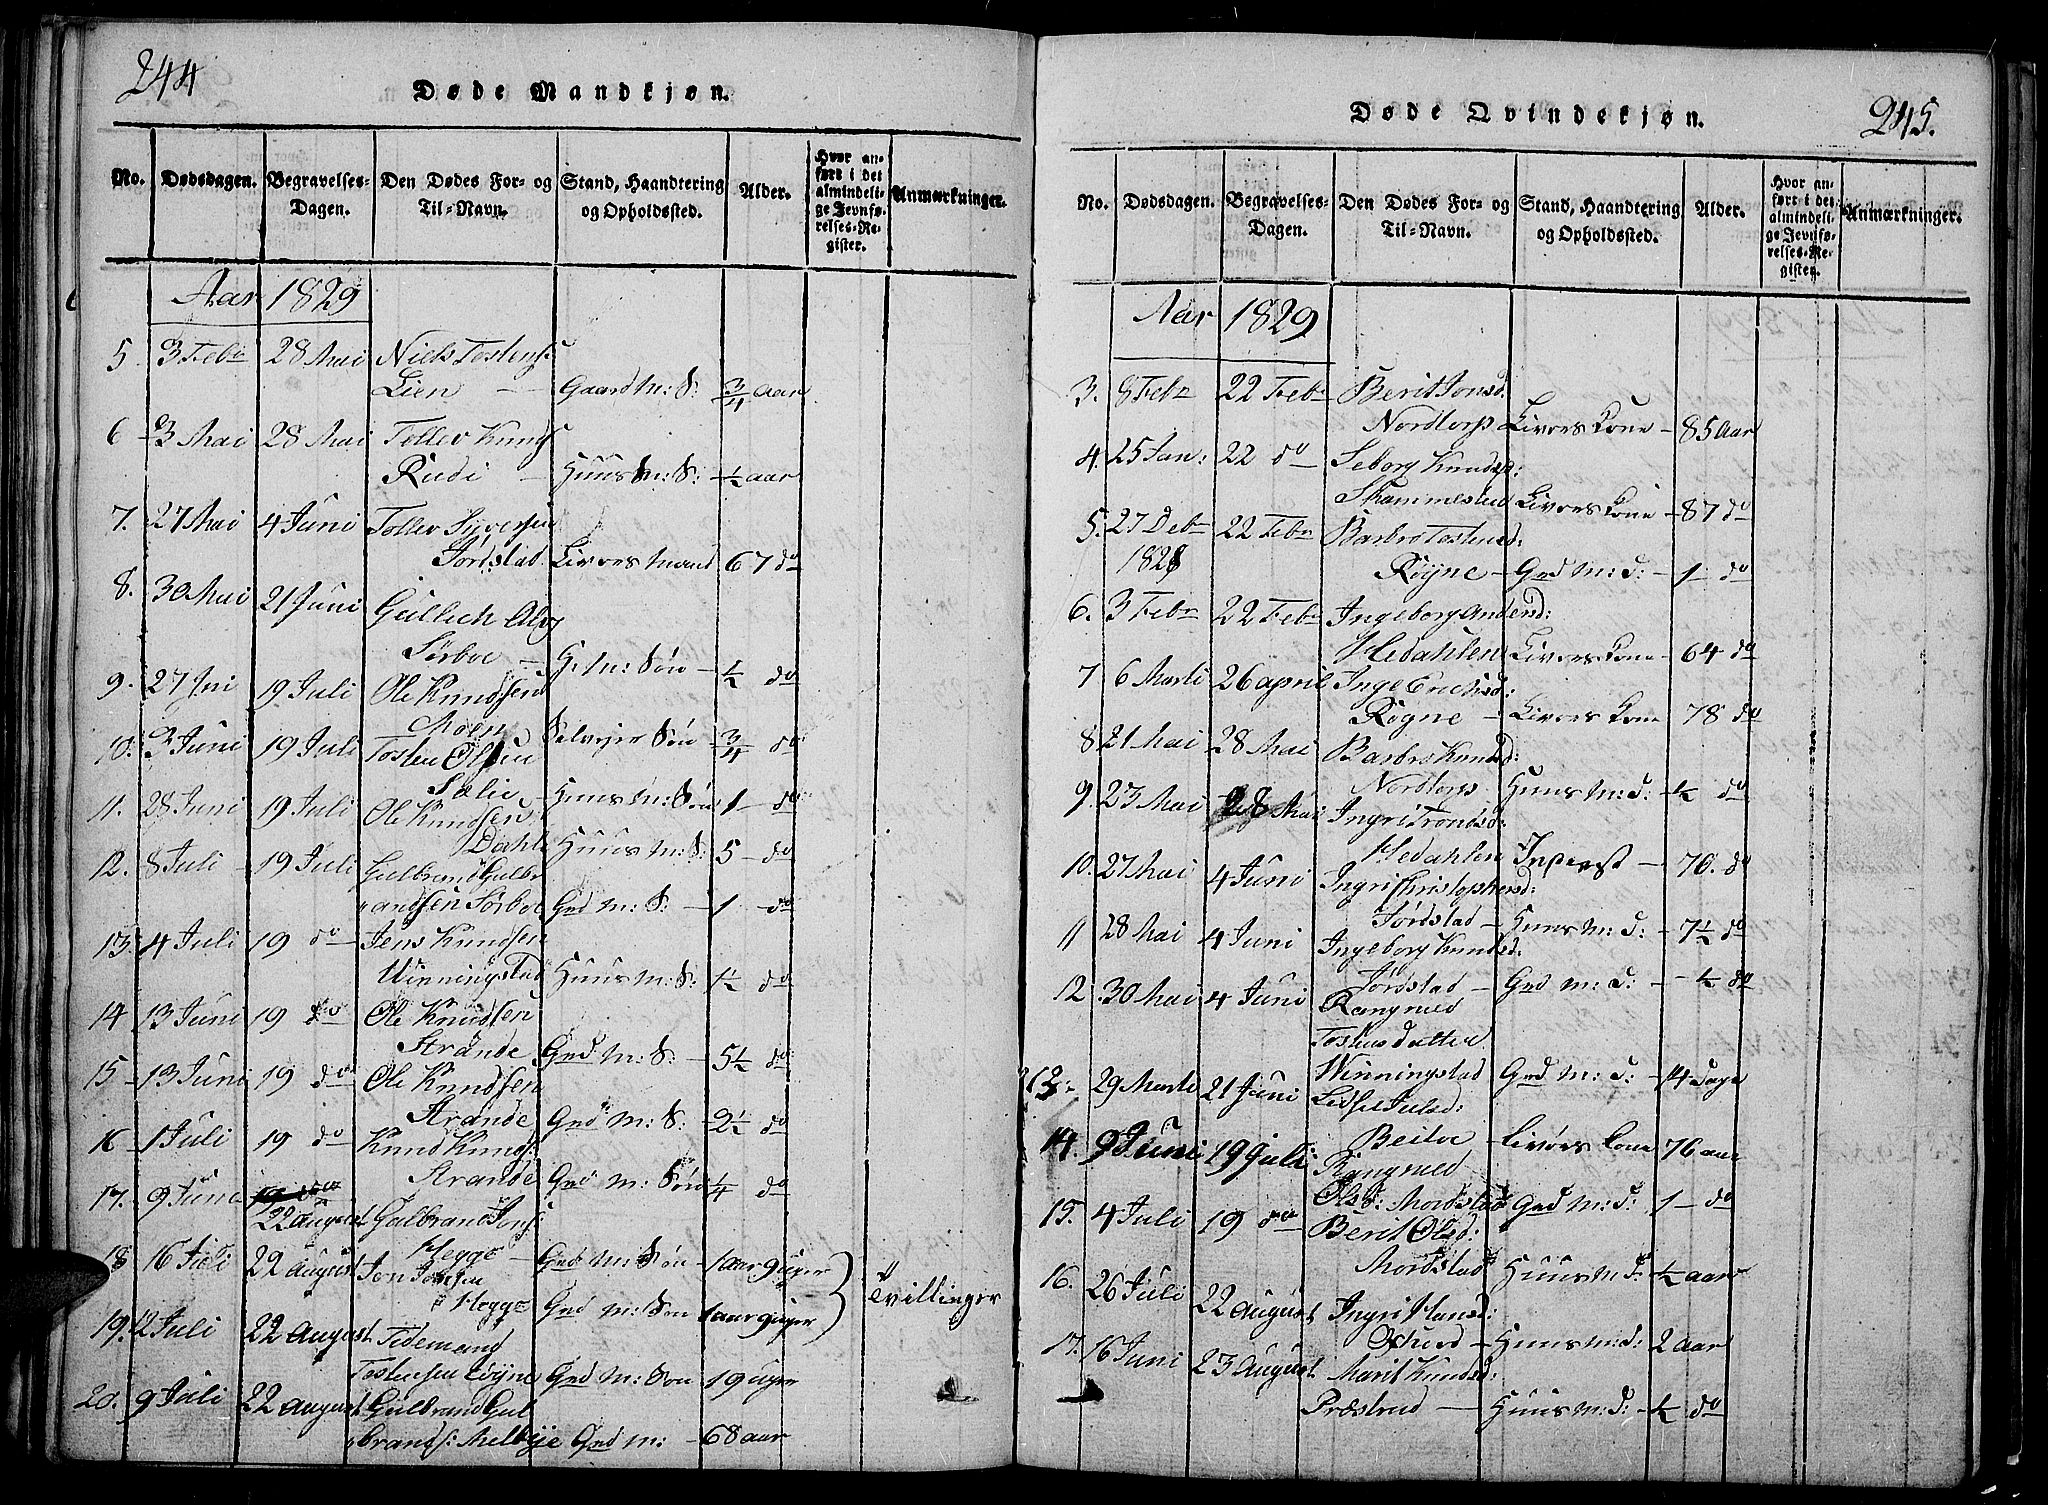 244
Døde Mandkjøn.
No. Dødsdagen. Begravelses-Dagen. Den Dødes For- og Til-Navn. Stand, Haandtering og Opholdssted. Alder. Hvor anført i det almindelige Jevnførelses-Register. Anmærkninger.
Aar 1829
5. 3 Febr 28 Mai Niels Tostens:
Lien — Gaardm: S: 3/4 aar
6 3 Mai 28 Mai Toller Knuds
Rudi — Huusm: S: 1/2 aar
7. 27 Mai 4 Juni Toller Syversen
Jørdstad Livøres mand 67 do
8. 30 Mai 21 Juni Gullich
Sørboe — H: m: Søn — 1/2 do
9. 27 19 Juli Ole Knudsen
Moen Selvejer Søn 3/4 do
10. 3 Juni 19 Juli Tosten Olsen
Sælie — Huusm: Søn 1 — do
11. 28 Juni 19 Juli Ole Knudsen
Dahl Huusm: S: 5 — do
12. 8 Juli 19 Juli Gulbrand Gulbr
andsen Sørboe Grd m: S: — 1 do
13. 4 Juli 19 do Jens Knudsen
Winningstad Huusm: S: 1 1/2 do
14 13 Juni 19 do Ole Knudsen
Strande Grd m: S: — 5 1/2 do
15 — 13 Juni 19 do Ole Knudsen
Strande Grd m: S: — 2 1/2 do
16 — 1 Juli 19 do Knud Knuds:
Strande Grd m: Søn 1/4 do
17. 9 Juni 22 August Gulbrand Jons:
Hegge — Grd m: Søn 1 aar 9 uger
18 16 Juli 22 August Jon Jonsen
Hegge Grd m: Søn 1 aar 9 uger
Tvillinger
19. 12 Juli 22 August Tidemand
Tostensen Grd m: Søn 19 uger
20. 9 Juli 22 August Gulbrand Gul
brands: Melbye Grd m: — 68 aar
245.
Døde Qvindekjøn.
No. Dødsdagen. Begravelses-Dagen. Den Dødes For- og Til-Navn. Stand, Haandtering og Opholdssted. Alder. Hvor anført i det almindelige Jevnførelses-Register. Anmærkninger.
Aar 1829
3. 8 Febr 22 Febr Berit Jonsd.
Nordtorp Livørs kone — 85 Aar
4. 25 Jan: 22 do Seborg Knudsd:
Skammestad Livørs kone — 87 do
5. 27 Debr 22 Febr Barbro Tostensd:
1828 Røyne — Grd m: d: — 1 do
6. 3 Febr 22 Febr Ingeborg Andersd:
Hedahlen Livørs kone — 64 do
7 6 Marti 26 april Inge Erichsd:
Røgne — Livørs kone 78 do
8 21 Mai 28 Mai Barbro Knudsd:
Nordtorp Huusm: d: 1/2 do
9. 23 Mai 28 Mai Ingri Trondsd:
Hedahlen Inderst — 70. do
10. 27 Mai 4 Juni Ingri Christophersd:
Jørdstad — Huusm: d: — 7 1/2 do
11 28 Mai 4 Juni Ingeborg Knudsd:
Jørdstad — Grd m: d: — 1/2 do
12. 30 Mai 4 Juni Rangned
Tostensdatter
Winningstad Grd m: d: — 14 dage
13. 29 Marti 21 Juni
Beitoe — Livørs kone 76 aar
14. 9 Juni 19 Juli Rangned
Olsd: Mordstad Grd m: d: 1 — do
15. 4 Juli 19 do Berit Olsd:
Mordstad Huusm: d: 1/2 aar
16. 26 Juli 22 August Ingri Hansd:
— Huusm: d: 2 aar
17. 16 Juni 23 August Marit Knudsd:
Præstrud — Huusm: d: 1/2 do